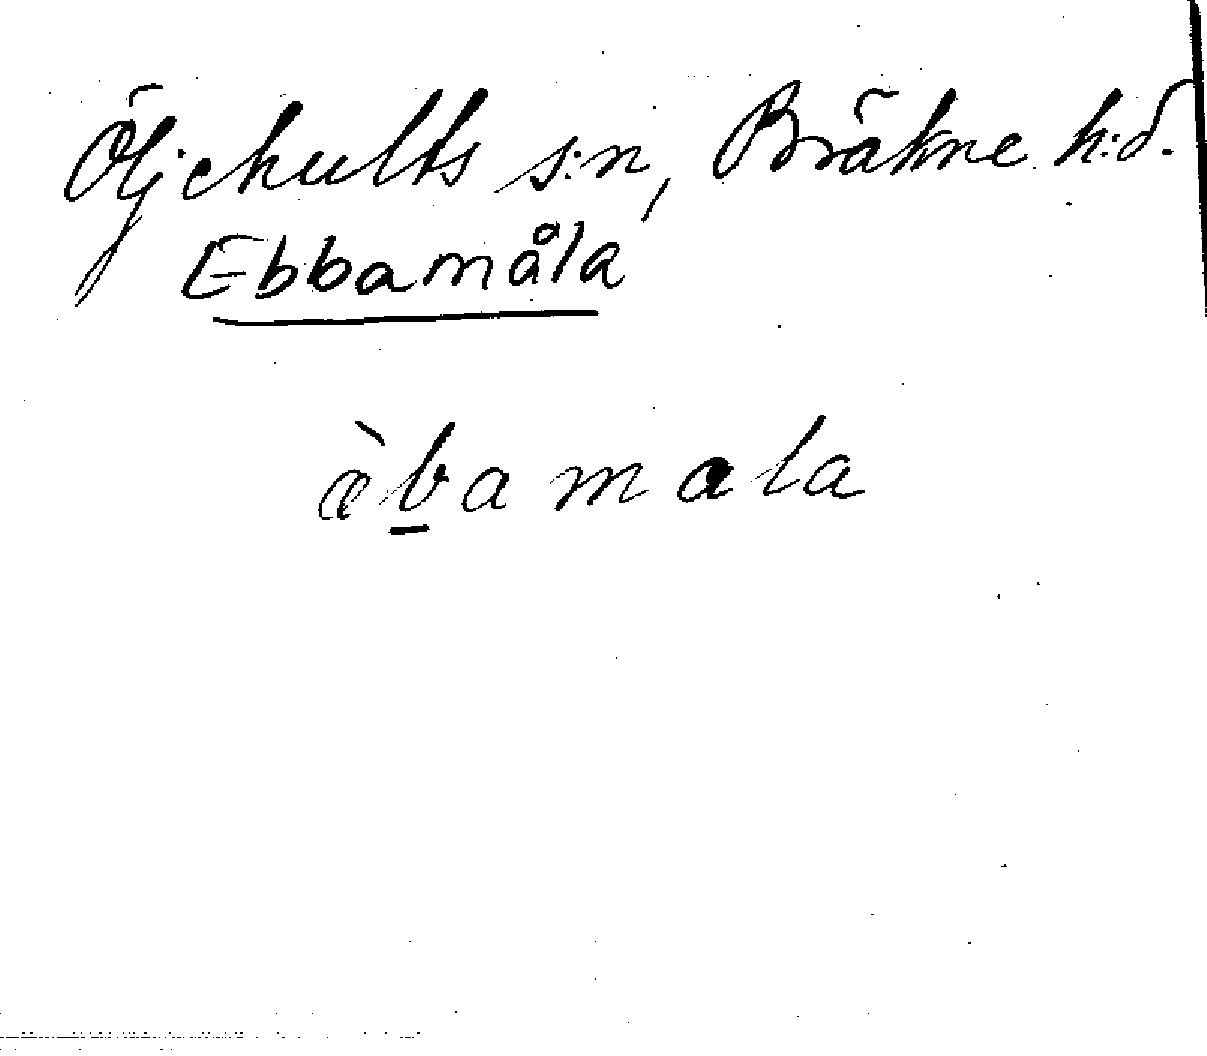 Öljehults s:n, Bräkne h:d.
Ebbamåla
æ̀b̲amala